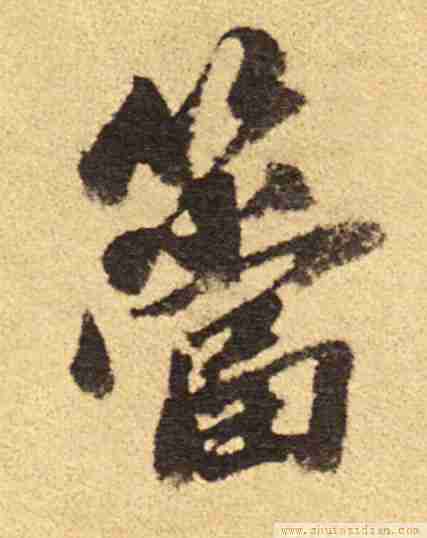 簹
www.shufazidian.com